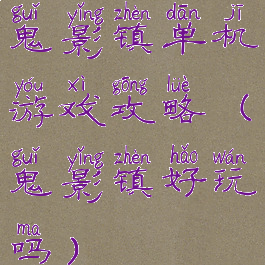 guǐ yǐng zhèn dān jī
鬼影镇单机
yóu xì gōng lüè
游戏攻略（
guǐ yǐng zhèn hǎo wán
鬼影镇好玩
ma
吗）